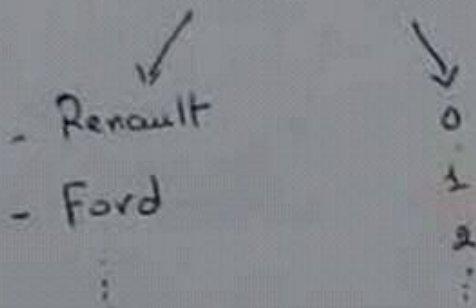 - Renault 0
- Ford 1
2
⋮ ⋮